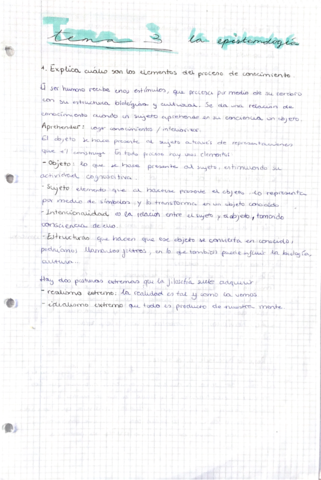 Tema 3 la epistemología
1. Explica cuáles son los elementos del proceso de conocimiento.
El ser humano recibe unos estímulos, que procesa por medio de su cerebro
con su estructura biológica y cultural. Se da una relación de
conocimiento cuando un sujeto aprehende en su conciencia un objeto.
Aprehender: conocimientos /
El objeto se hace presente al sujeto a través de representaciones
que el En todo proceso hay elementos
- Objeto: lo que se hace presente al sujeto, su
actividad cognoscitiva.
- Sujeto: elemento que al hacerse presente el objeto lo representa
por medio de símbolos, y lo transforma en un objeto conocido.
- Intencionalidad: es la relación entre el sujeto y objeto, tomando
conciencia de eso.
- Estructuras que hacen que ese objeto se convierta en conocido:
podríamos llamarles filtros, en lo que también puede influir la biología,
cultura...
Hay dos posturas extremas que la filosofía suele adquirir
- realismo extremo: la realidad es tal y como la vemos
- idealismo extremo: que todo es producto de nuestra mente.